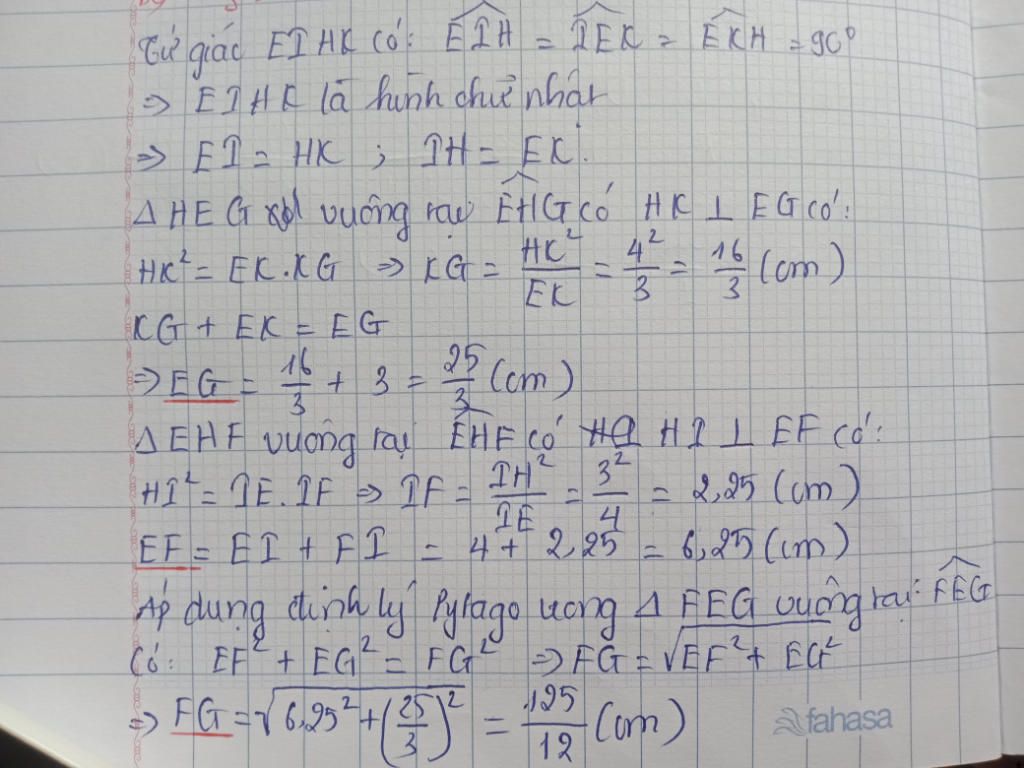 Tứ giác EIHK có: EIH = IEK = EKH = 90°
⇒ EIHK là hình chữ nhật
⇒ EI = HK ; IH = EK.
Δ HEG vuông tại EHG có HK ⊥ EG có:
HK² = EK.KG ⇒ KG = HK²/EK = 4²/3 = 16/3 (cm)
KG + EK = EG
⇒ EG = 16/3 + 3 = 25/3 (cm)
Δ EHF vuông tại EHF có HI ⊥ EF có:
HI² = IE.IF ⇒ IF = IH²/IE = 3²/4 = 2,25 (cm)
EF = EI + FI = 4 + 2,25 = 6,25 (cm)
Áp dụng định lý Pytago trong Δ FEG vuông tại: FEG
Có: EF² + EG² = FG² ⇒ FG = √EF² + EG²
⇒ FG = √6,25² + (25/3)² = 125/12 (cm)
fahasa